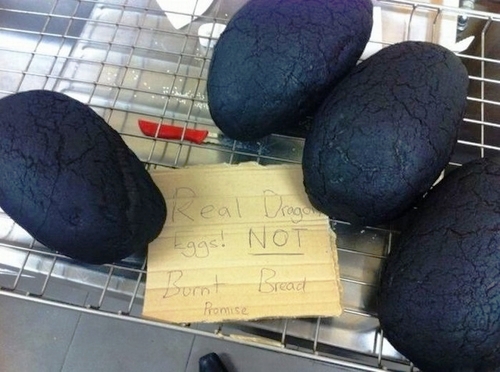 Real Dragon
Eggs! NOT
Burnt Bread
Promise